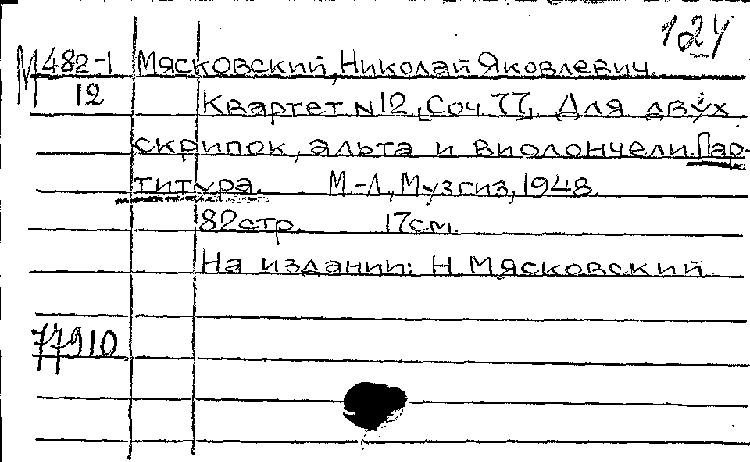 124
М 482-1 Мясковский, Николай Яковлевич.
12 Квартет N12, Соч. 77, Для двух
скрипок, альта и виолончели. Пар-
титура. М-Л, Музгиз, 1948.
82стр. 17см.
На издании: Н. Мясковский
77910